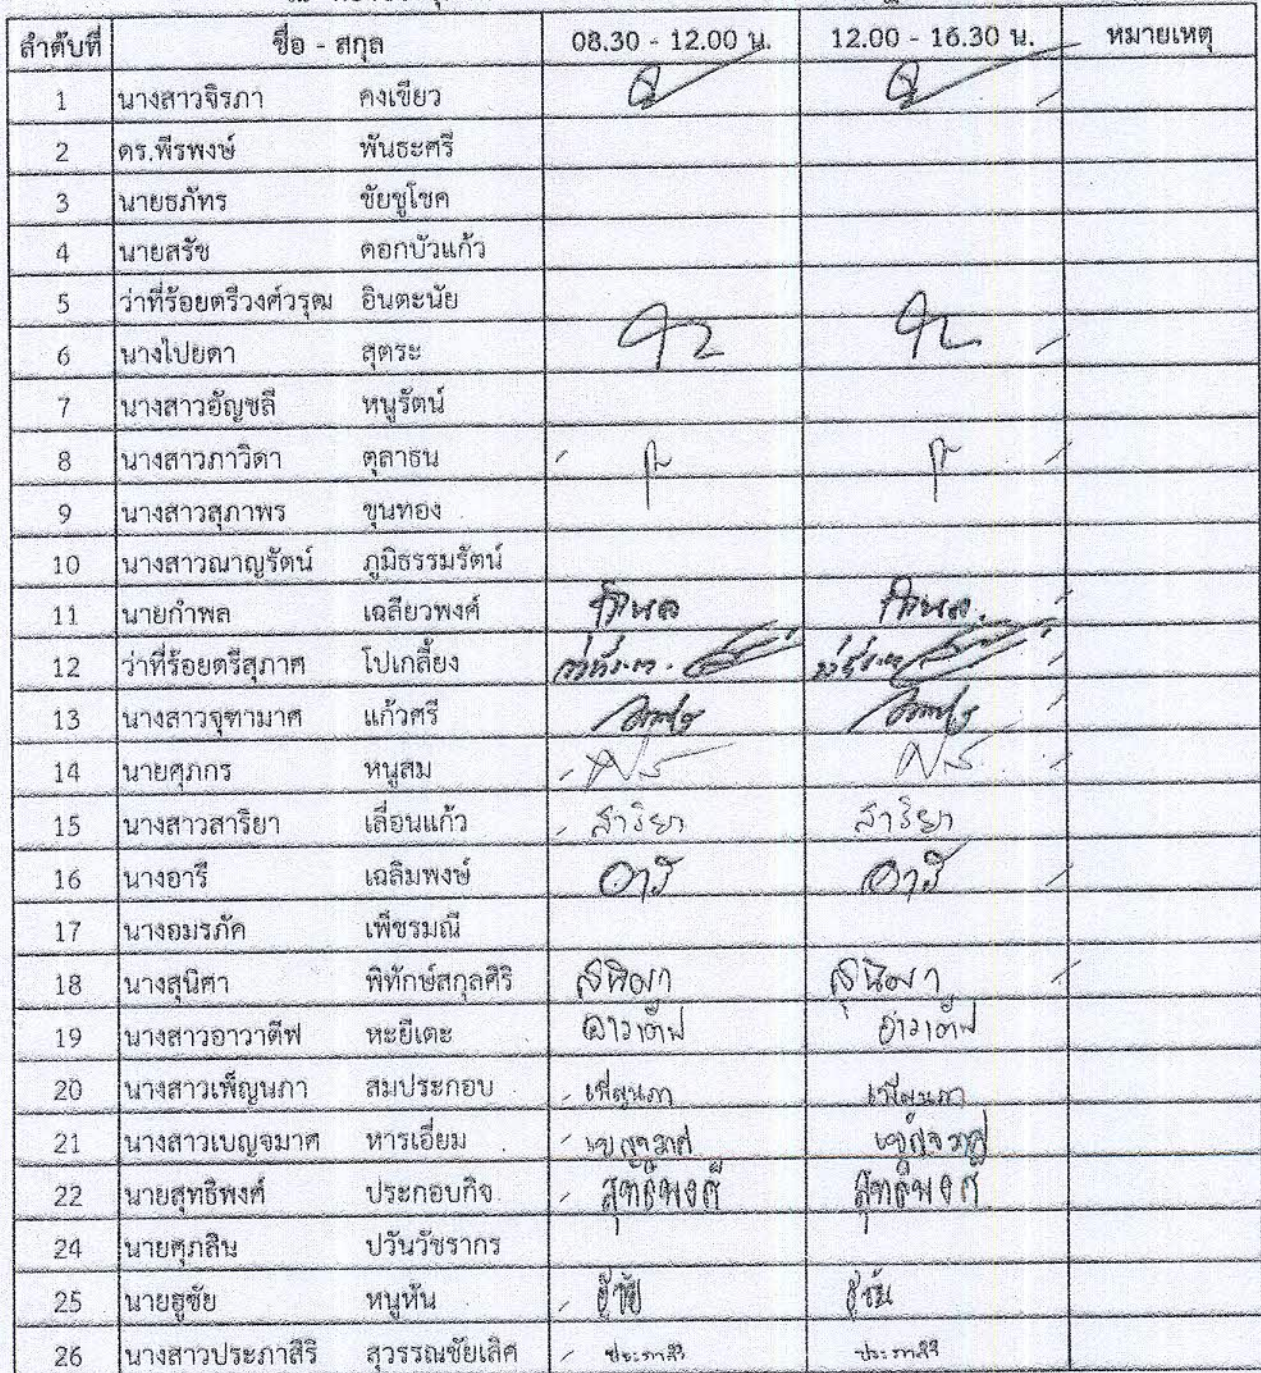 ลำดับที่ ชื่อ - สกุล 08.30 - 12.00 น. 12.00 - 16.30 น. หมายเหตุ
1 นางสาวจิรภา คงเขียว
2 ดร.พีรพงษ์ พันธะศรี
3 นายธภัทร ชัยชูโชค
4 นายสรัช ดอกบัวแก้ว
5 ว่าที่ร้อยตรีวงศ์วรุฒ อินตะนัย
6 นางไปยดา สุตระ
7 นางสาวอัญชลี หนูรัตน์
8 นางสาวภาวิดา ตุลาธน
9 นางสาวสุภาพร ขุนทอง
10 นางสาวณาญรัตน์ ภูมิธรรมรัตน์
11 นายกำพล เฉลียวพงศ์ กำพล กำพล
12 ว่าที่ร้อยตรีสุภาศ โปเกลี้ยง
13 นางสาวจุฑามาศ แก้วศรี
14 นายศุภกร หนูสม
15 นางสาวสาริยา เลื่อนแก้ว สาริยา สาริยา
16 นางอารี เฉลิมพงษ์ อารี อารี
17 นางอมรภัค เพ็ชรมณี
18 นางสุนิศา พิทักษ์สกุลศิริ สุนิศา สุนิศา
19 นางสาวอาวาตีฟ หะยีเตะ อาวาตีฟ อาวาตีฟ
20 นางสาวเพ็ญนภา สมประกอบ เพ็ญนภา เพ็ญนภา
21 นางสาวเบญจมาศ หารเอี่ยม เบญจมาศ เบญจมาศ
22 นายสุทธิพงศ์ ประกอบกิจ สุทธิพงศ์ สุทธิพงศ์
24 นายศุภสิน ปวันวัชรากร
25 นายธูชัย หนูหัน ธูชัย
26 นางสาวประภาสิริ สุวรรณชัยเลิศ ประภาสิริ ประภาสิริ